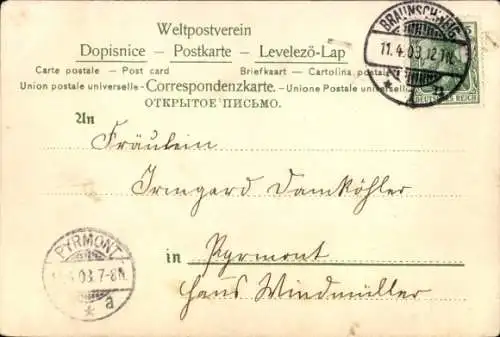 Weltpostverein
Dopisnice – Postkarte – Levelező-Lap
Carte postale – Post card Briefkaart – Cartolina postale
Union postale universelle – Correspondenzkarte. – Unione Postale universelle
ОТКРЫТОЕ ПИСЬМО.
An
Fräulein
Irmgard Damköhler
in Pyrmont
Haus Windmüller
BRAUNSCHWEIG
11.4.03.12-1N.
DEUTSCHES REICH
PYRMONT
.4.03.7-8N.
* a